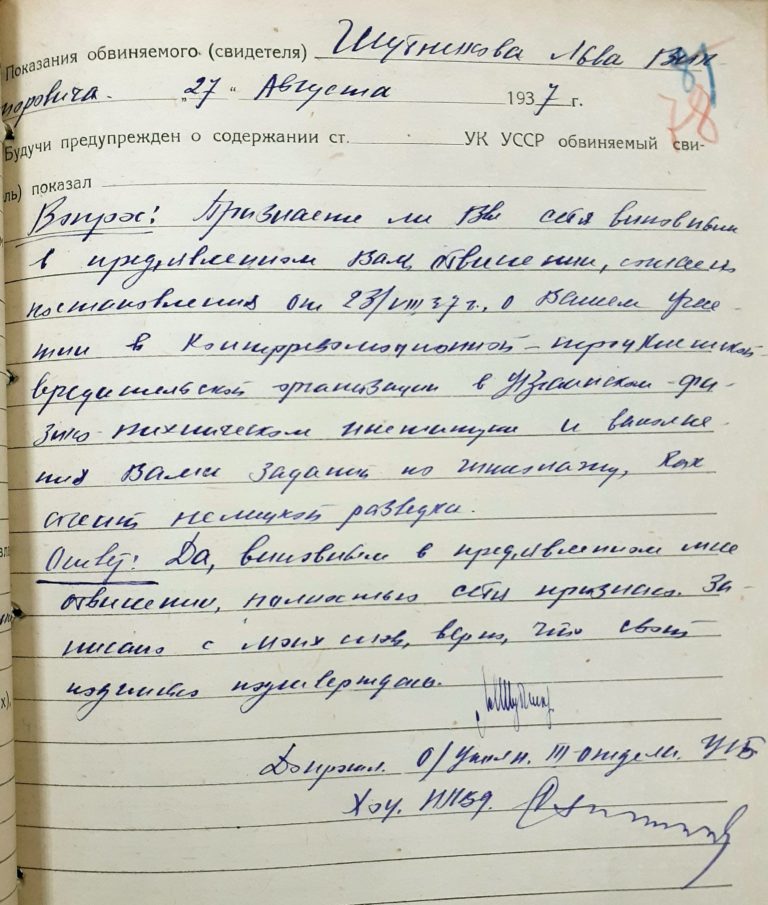 Показания обвиняемого (свидетеля) Шубникова Льва Вик
торовича. „27“ Августа 1937 г.
Будучи предупрежден о содержании ст. УК УССР обвиняемый сви-
ль) показал
Вопрос: Признаете ли Вы себя виновным
в предъявленном Вам обвинении, согласно
постановления от 23/VIII 37 г., о Вашем учас-
тии в контрреволюционной-троцкистской
вредительской организации в Украинском фи-
зико-техническом институте и выполне-
ния Вами заданий по шпионажу, как
агент немецкой разведки.
Ответ: Да, виновным в предъявленном мне
обвинении, полностью себя признаю. За-
писано с моих слов, верно, что своей
подписью подтверждаю.
ЛШубник
Допросил. О/Уполн. III отдела. УГБ
Хоу. НКВД.
78
х),